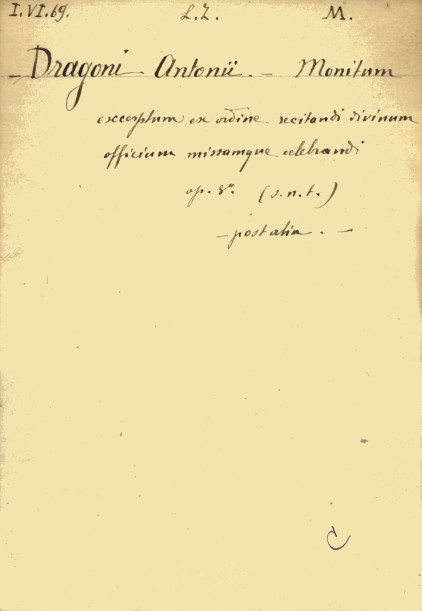 I.VI.69. L.Z. M.
Dragoni Antonii. - Monitum
excerptum ex ordine recitandi divinum
officium missamque celebrandi
op. 8.º (s.n.t.)
- post alia. -
C